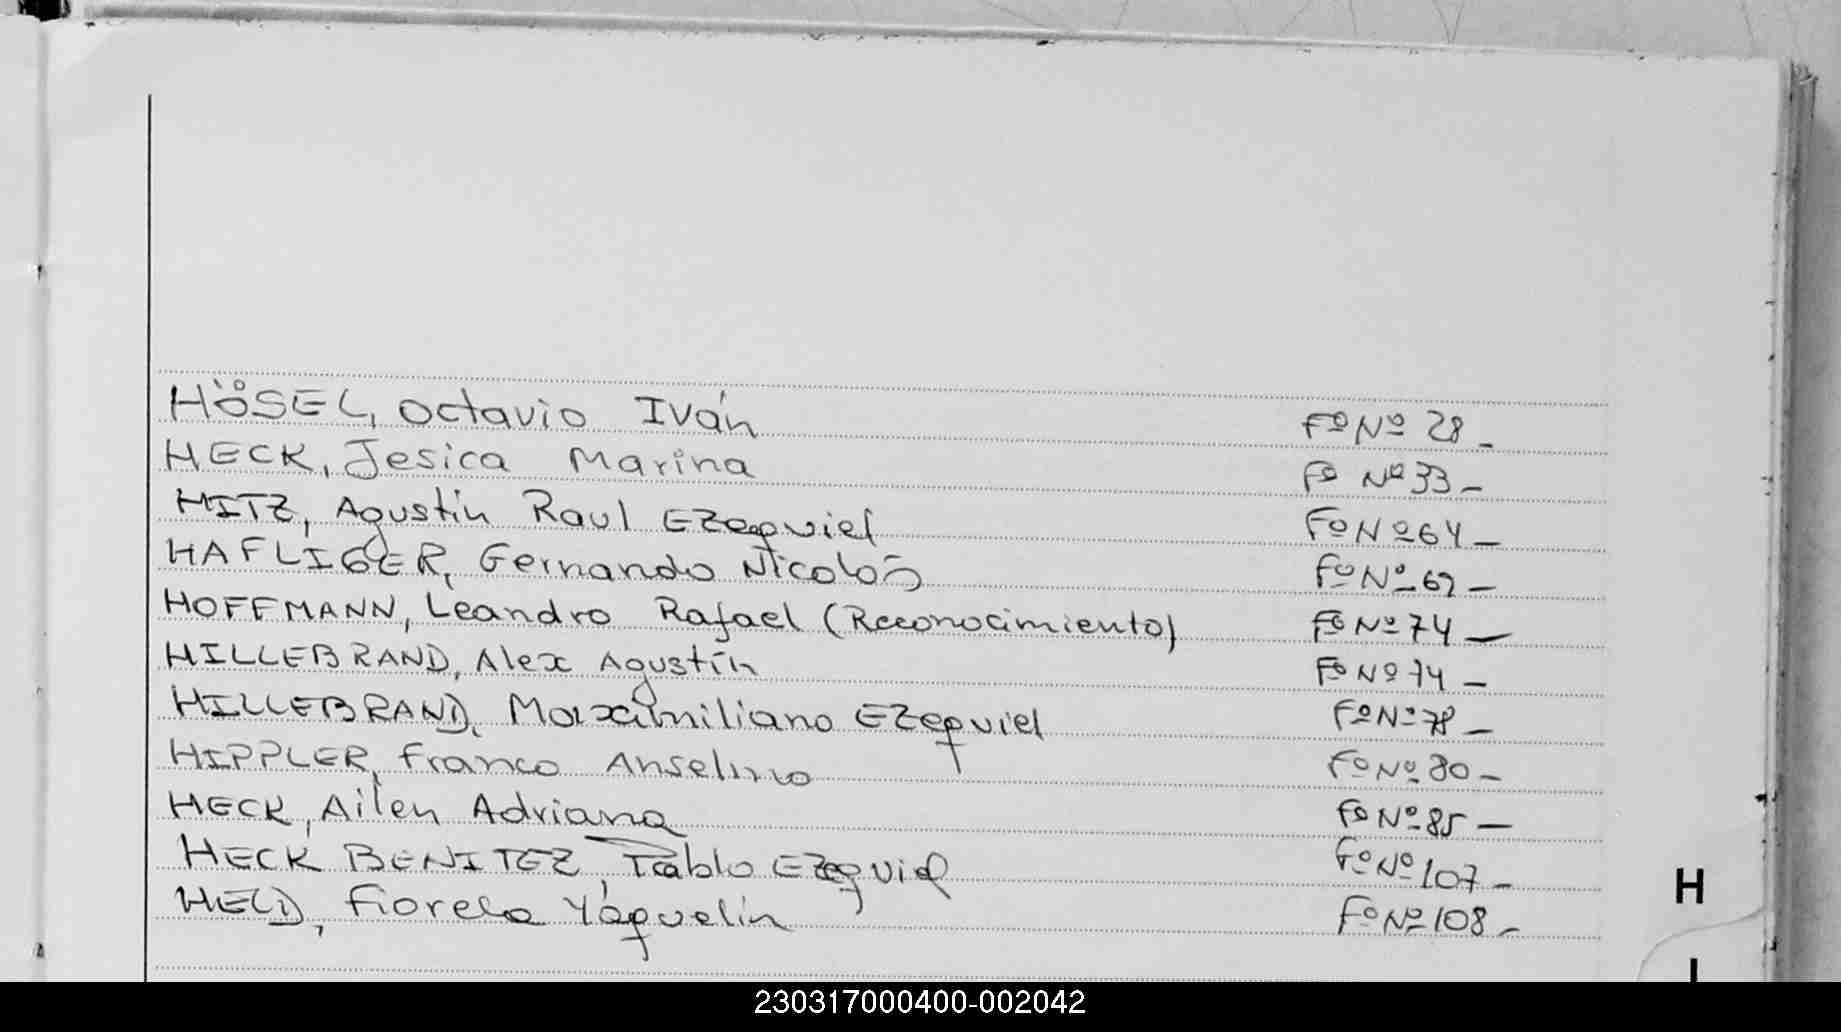 HÖSEL, Octavio Iván Fº Nº 28-
HECK, Jesica Marina Fº Nº 33-
HITZ, Agustín Raul Ezequiel Fº Nº 64-
HAFLIGER, Gernando Nicolás Fº Nº 69-
HOFFMANN, Leandro Rafael (Reconocimiento) Fº Nº 74-
HILLEBRAND, Alex Agustín Fº Nº 74-
HILLEBRAND, Maximiliano Ezequiel Fº Nº 78-
HIPPLER, Franco Anselmo Fº Nº 80-
HECK, Ailen Adriana Fº Nº 85-
HECK BENITEZ, Pablo Ezequiel Fº Nº 107-
HELD, Fiorela Yaquelin Fº Nº 108-
H
I
230317000400-002042